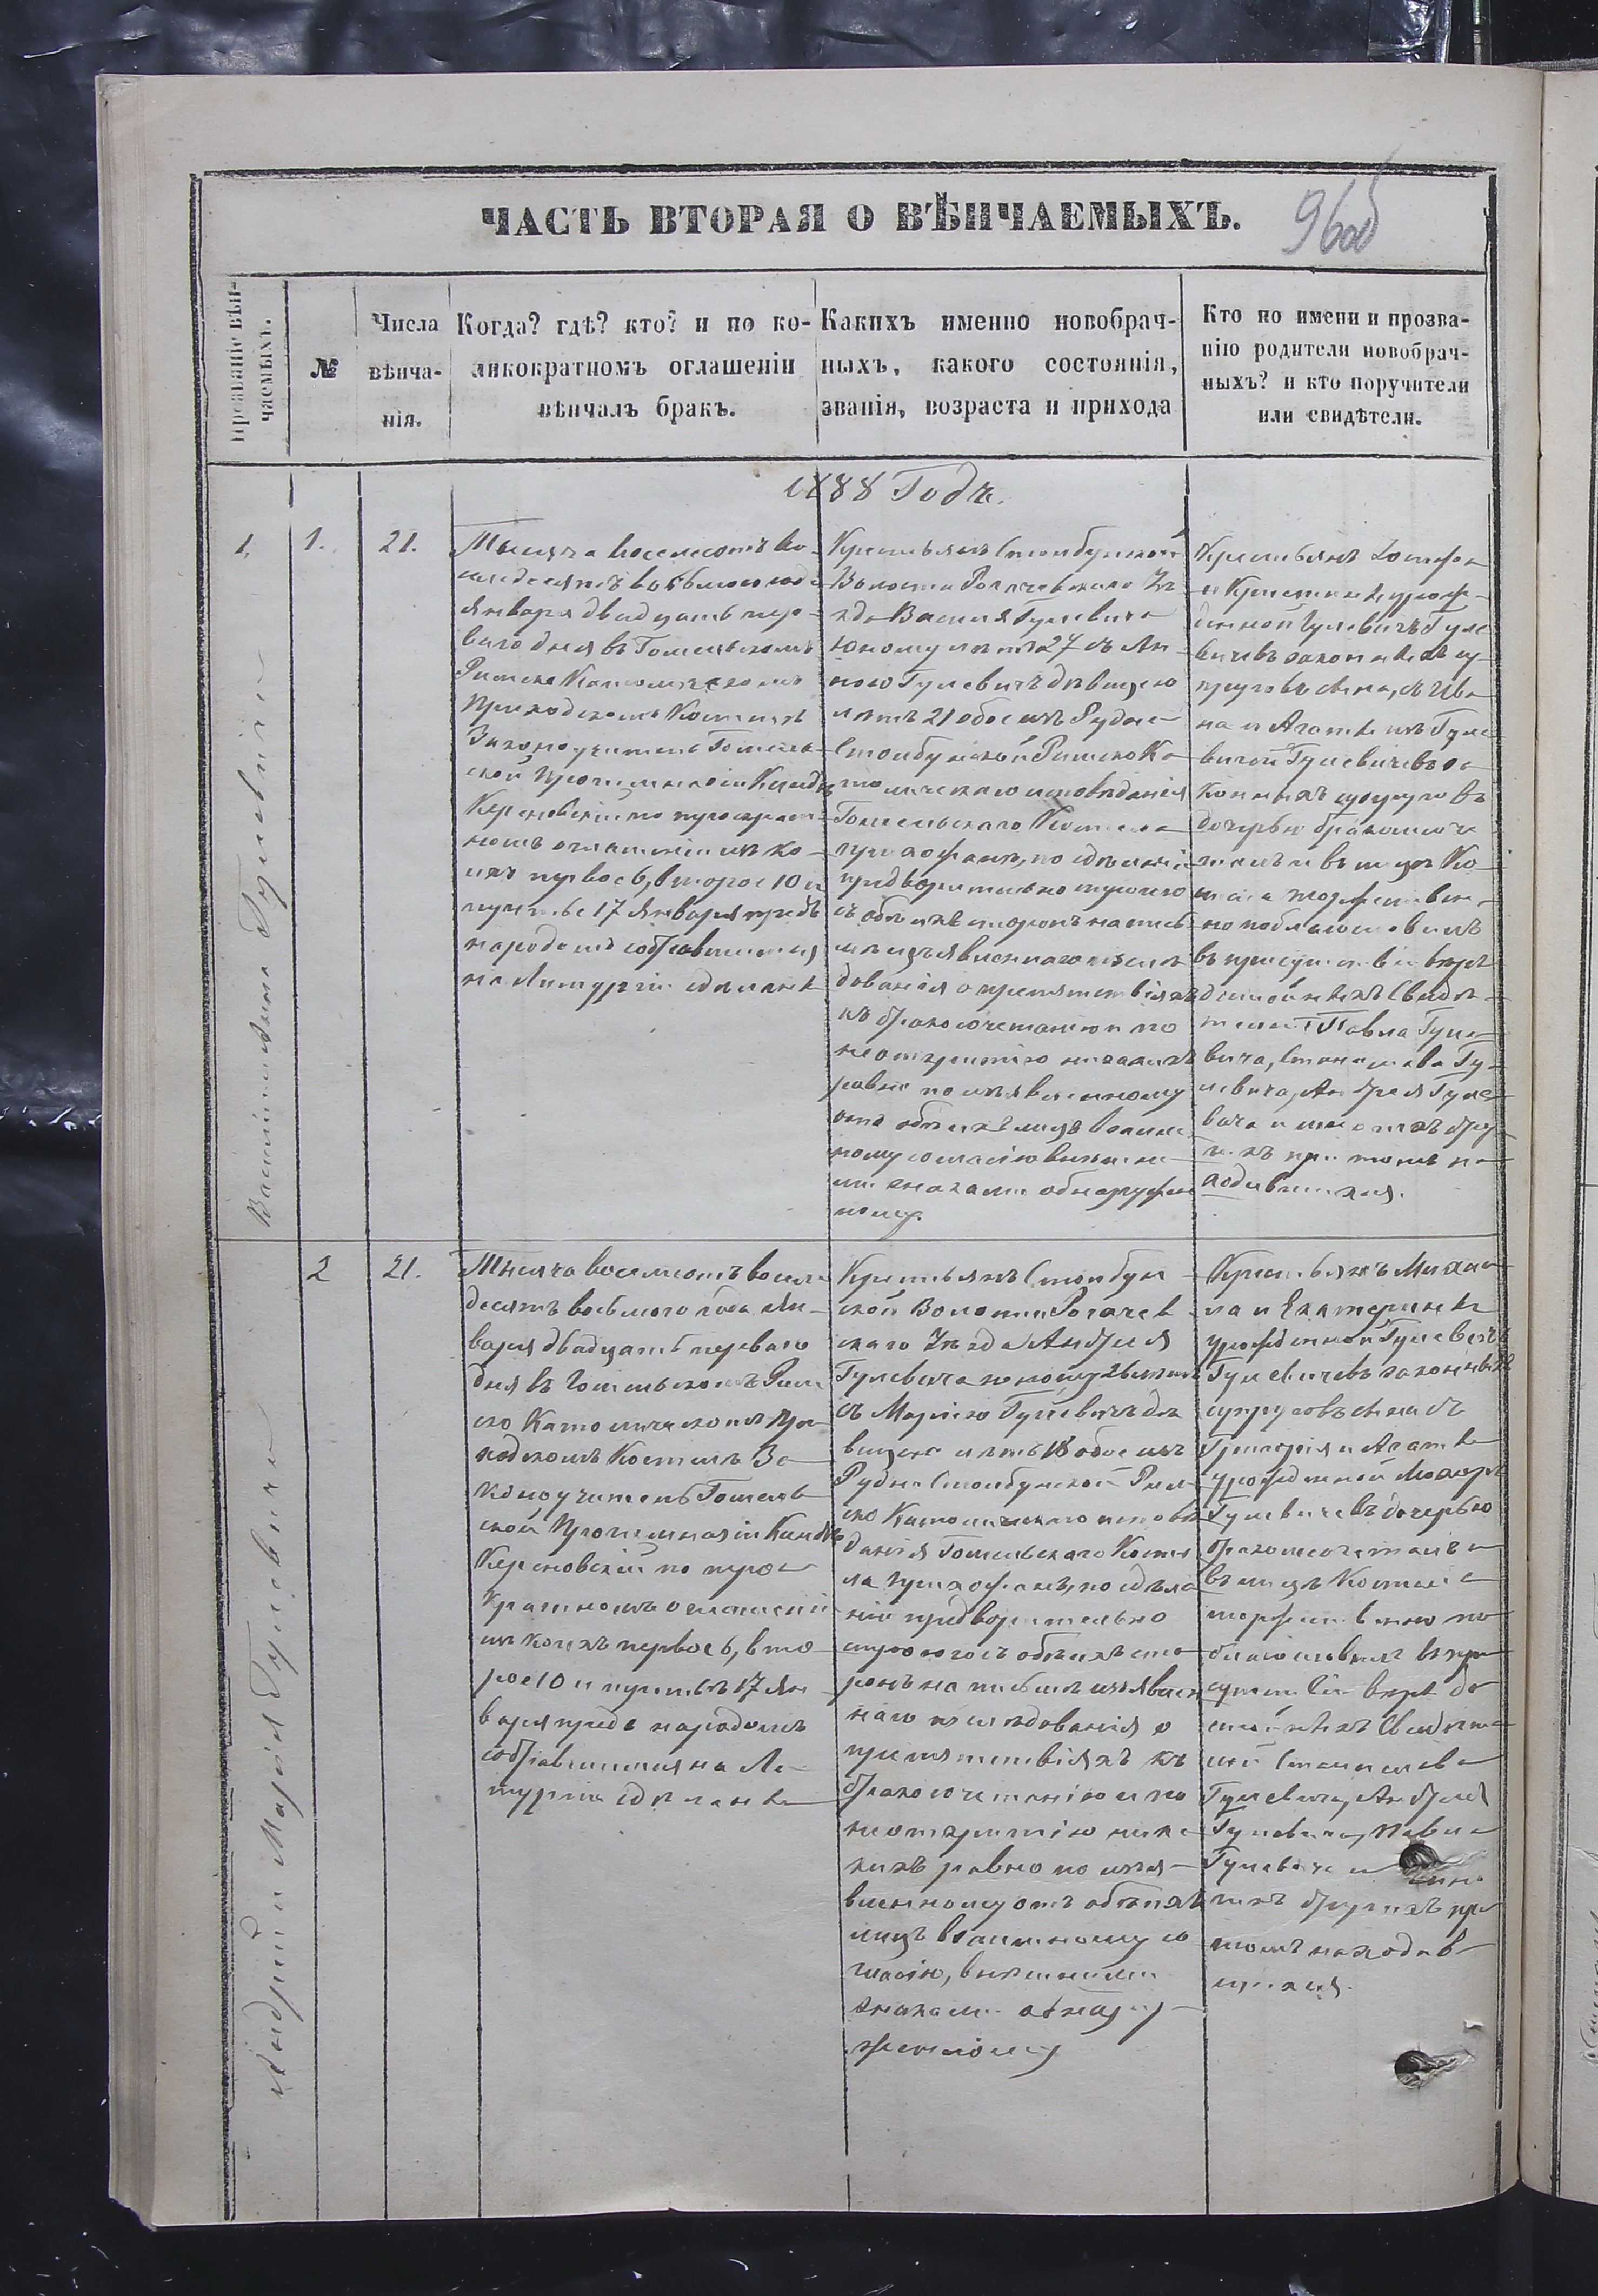 ЧАСТЬ ВТОРАЯ О ВѢНЧАЕМЫХЪ.
96об
Прозваніе вѣн-
чаемыхъ.
№
Числа
вѣнча-
нія.
Когда? гдѣ? кто? и по ко-
ликократномъ оглашеніи
вѣнчалъ бракъ.
Какихъ именно новобрач-
ныхъ, какого состоянія,
званія, возраста и прихода
Кто по имени и прозва-
нію родители новобрач-
ныхъ? и кто поручители
или свидѣтели.
1888 Годъ.
1.
1.
21.
Тысяча восемсотъ во-
семдесятъ восьмого года
Января двадцать пер-
ваго дня въ Гомельскомъ
Римско Католическомъ
Приходскомъ Костелѣ
Законоучитель Гомель-
ской Прогимназіи Ксендзъ
по троекрат-
номъ оглашеніи изъ ко-
ихъ первое 6, второе 10 и
третье 17 Января предъ
народомъ собравшимся
на Литургіи сдѣланы
Крестьянъ Столбунской
Волости Рогачевскаго Уѣ-
зда Василія Гулевича
юному лѣтъ 27 съ Ан-
ною Гулевичъ дѣвицею
лѣтъ 21 обоихъ Рудни
Столбунской Римско Ка-
толическаго исповѣданія
Гомельскаго Костела
прихожанъ, по сдѣланіи
предварительно строгаго
съ обѣихъ сторонъ на пись-
мѣ изъявленнаго изслѣ-
дованія о препятствіяхъ
къ бракосочетанію и по
неоткрытію никакихъ
равно по изъявленному
отъ обѣихъ лицъ взаим-
ному согласію внѣшни-
ми знаками обнаружен-
ному.
Крестьянъ
и Кристины урож-
денной Гулевичъ Гуле
вичевъ законныхъ су-
пруговъ сына, съ Ива
на и Агаты изъ Гуле
вичей Гулевичевъ за
конныхъ супруговъ
дочерью бракосоче
талъ и въ лицѣ Ко
стела торжествен-
но поблагословилъ
въ присутствіи вѣро
достойныхъ Свидѣ-
телей Павла Гуле
вича, Станислава Гу-
левича, Андрея Гуле
вича и многихъ дру-
гихъ при томъ на
ходившихся.
2
21.
Тысяча восемсотъ восем
десятъ восьмого года Ян-
варя двадцать перваго
дня въ Гомельскомъ Рим
ско Католическомъ При
ходскомъ Костелѣ За-
коноучитель Гомель
ской Прогимназіи Ксендзъ
по трое-
кратномъ оглашеніи
изъ коихъ первое 6, вто-
рое 10 и третье 17 Ян
варя предъ народомъ
собравшимся на Ли-
тургіи сдѣланы
Крестьянъ Столбун
ской Волости Рогачев
скаго Уѣзда Андрея
Гулевича юному лѣтъ
съ Маріею Гулевичъ дѣ
вицею лѣтъ 18 обоихъ
Рудни Столбунской Рим
ско Католическаго исповѣ
данія Гомельскаго Косте
ла прихожанъ, по сдѣла
ніи предварительно
строгаго съ обѣихъ сто-
ронъ на письмѣ изъявлен
наго изслѣдованія о
препятствіяхъ къ
бракосочетанію и по
неоткрытію ника
кихъ равно по изъя-
вленному отъ обѣихъ
лицъ взаимному со
гласію, внѣшними
знаками обнару-
женному
Крестьянъ Михаи-
ла и Екатерины
урожденной Гулевичъ
Гулевичевъ законныхъ
супруговъ сына съ
Григорія и Агаты
урожденной
Гулевичевъ дочерью
бракосочеталъ и
въ лицѣ Костела
торжественно по
благословилъ въ при
сутствіи вѣро до
стойныхъ Свидѣте
лей Станислава
Гулевича, Андрея
Гулевича, Павла
Гулевича и мно
гихъ другихъ при
томъ находив-
шихся.
Василій и Анна Гулевичи
Андрей и Марія Гулевичи